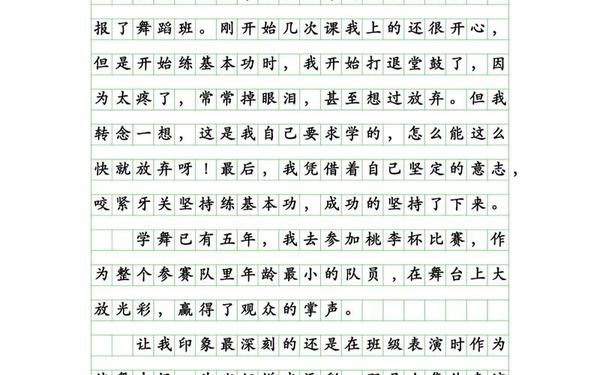 报了舞蹈班。刚开始几次课我上的还很开心，
但是开始练基本功时，我开始打退堂鼓了，因
为太疼了，常常掉眼泪，甚至想过放弃。但我
转念一想，这是我自己要求学的，怎么能这么
快就放弃呀！最后，我凭借着自己坚定的意志，
咬紧牙关坚持练基本功，成功的坚持了下来。
学舞已有五年，我去参加桃李杯比赛，作
为整个参赛队里年龄最小的队员，在舞台上大
放光彩，赢得了观众的掌声。
让我印象最深刻的还是在班级表演时作为